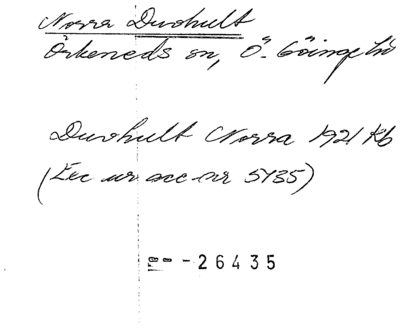 Norra Duvhult
Örkeneds sn, Ö. Göinge hd
Duvhult Norra 1921 Kb
(Exc ur acc nr 5735)
-26435